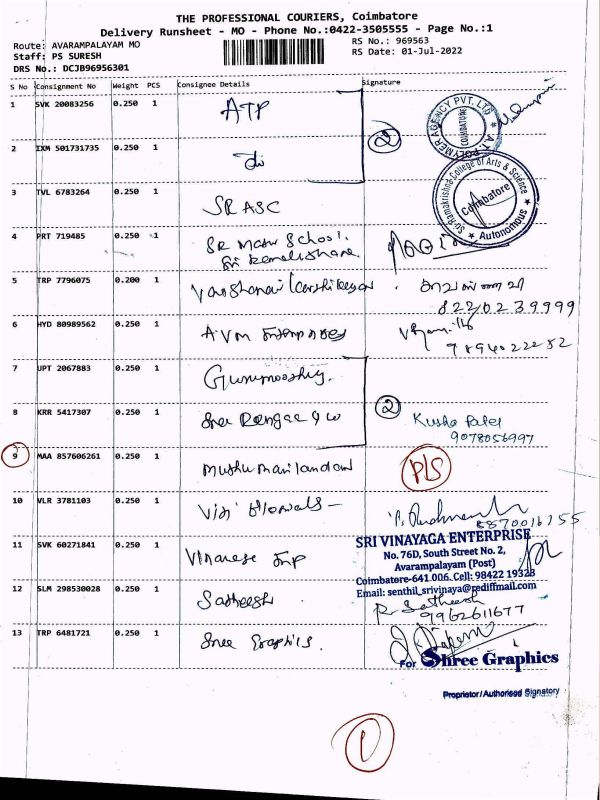 THE PROFESSIONAL COURIERS, Coimbatore
Delivery Runsheet - MO - Phone No.:0422-3505555 - Page No.:1
Route: AVARAMPALAYAM MO
RS No.: 969563
Staff: PS SURESH
RS Date: 01-Jul-2022
DRS No.: DCJB96956301
S No Consignment No Weight PCS Consignee Details Signature
1 SVK 20083256 0.250 1 ATP
POLYMER AGENCY PVT. LTD
COIMBATORE
2 IXM 501731735 0.250 1 di
2
3 TVL 6783264 0.250 1 SRASC
Sri Ramakrishna College of Arts & Science
Coimbatore
Autonomous
4 PRT 719485 0.250 1 SR School.
5 TRP 7796075 0.200 1
8220239999
6 HYD 80989562 0.250 1 AVM Enterprises
9894022252
7 UPT 2067883 0.250 1 Gurumoorthy.
8 KRR 5417307 0.250 1 Sree Rengaa & co
2 Kusho Patel
9078056997
9 MAA 857606261 0.250 1
P/S
10 VLR 3781103 0.250 1
8870016755
11 SVK 60271841 0.250 1 Vinayaga Enp
SRI VINAYAGA ENTERPRISE
No. 76D, South Street No. 2,
Avarampalayam (Post)
Coimbatore-641 006. Cell: 98422 19328
Email: senthil_srivinaya@rediffmail.com
12 SLM 298530028 0.250 1 Satheesh
R. Satheesh
9962611677
13 TRP 6481721 0.250 1 Sree Graphics.
For Shree Graphics
Proprietor/Authorised Signatory
1